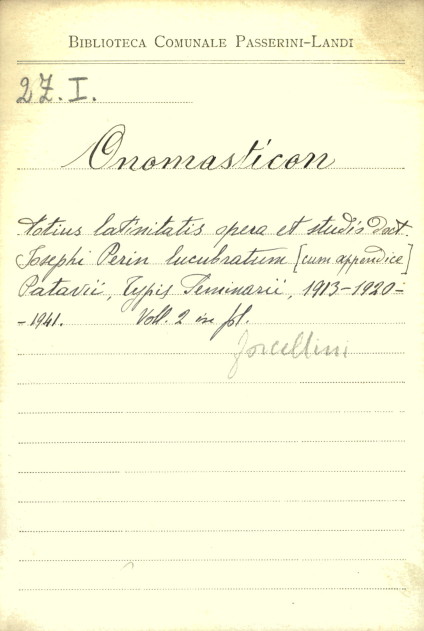 BIBLIOTECA COMUNALE PASSERINI-LANDI
2Z.I.
Onomasticon
totius latinitatis opera et studis doct.
Josephi Perin lucubratum [cum appendice]
Patavii, Typis Seminarii, 1913-1920-
-1941. Voll. 2 in fol.
Forcellini